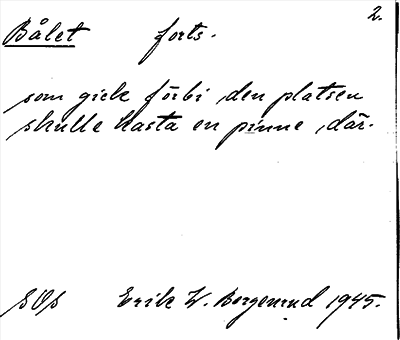 2.
Bålet forts.
som gick förbi den platsen
skulle kasta en pinne där.
Erik W. 1945.